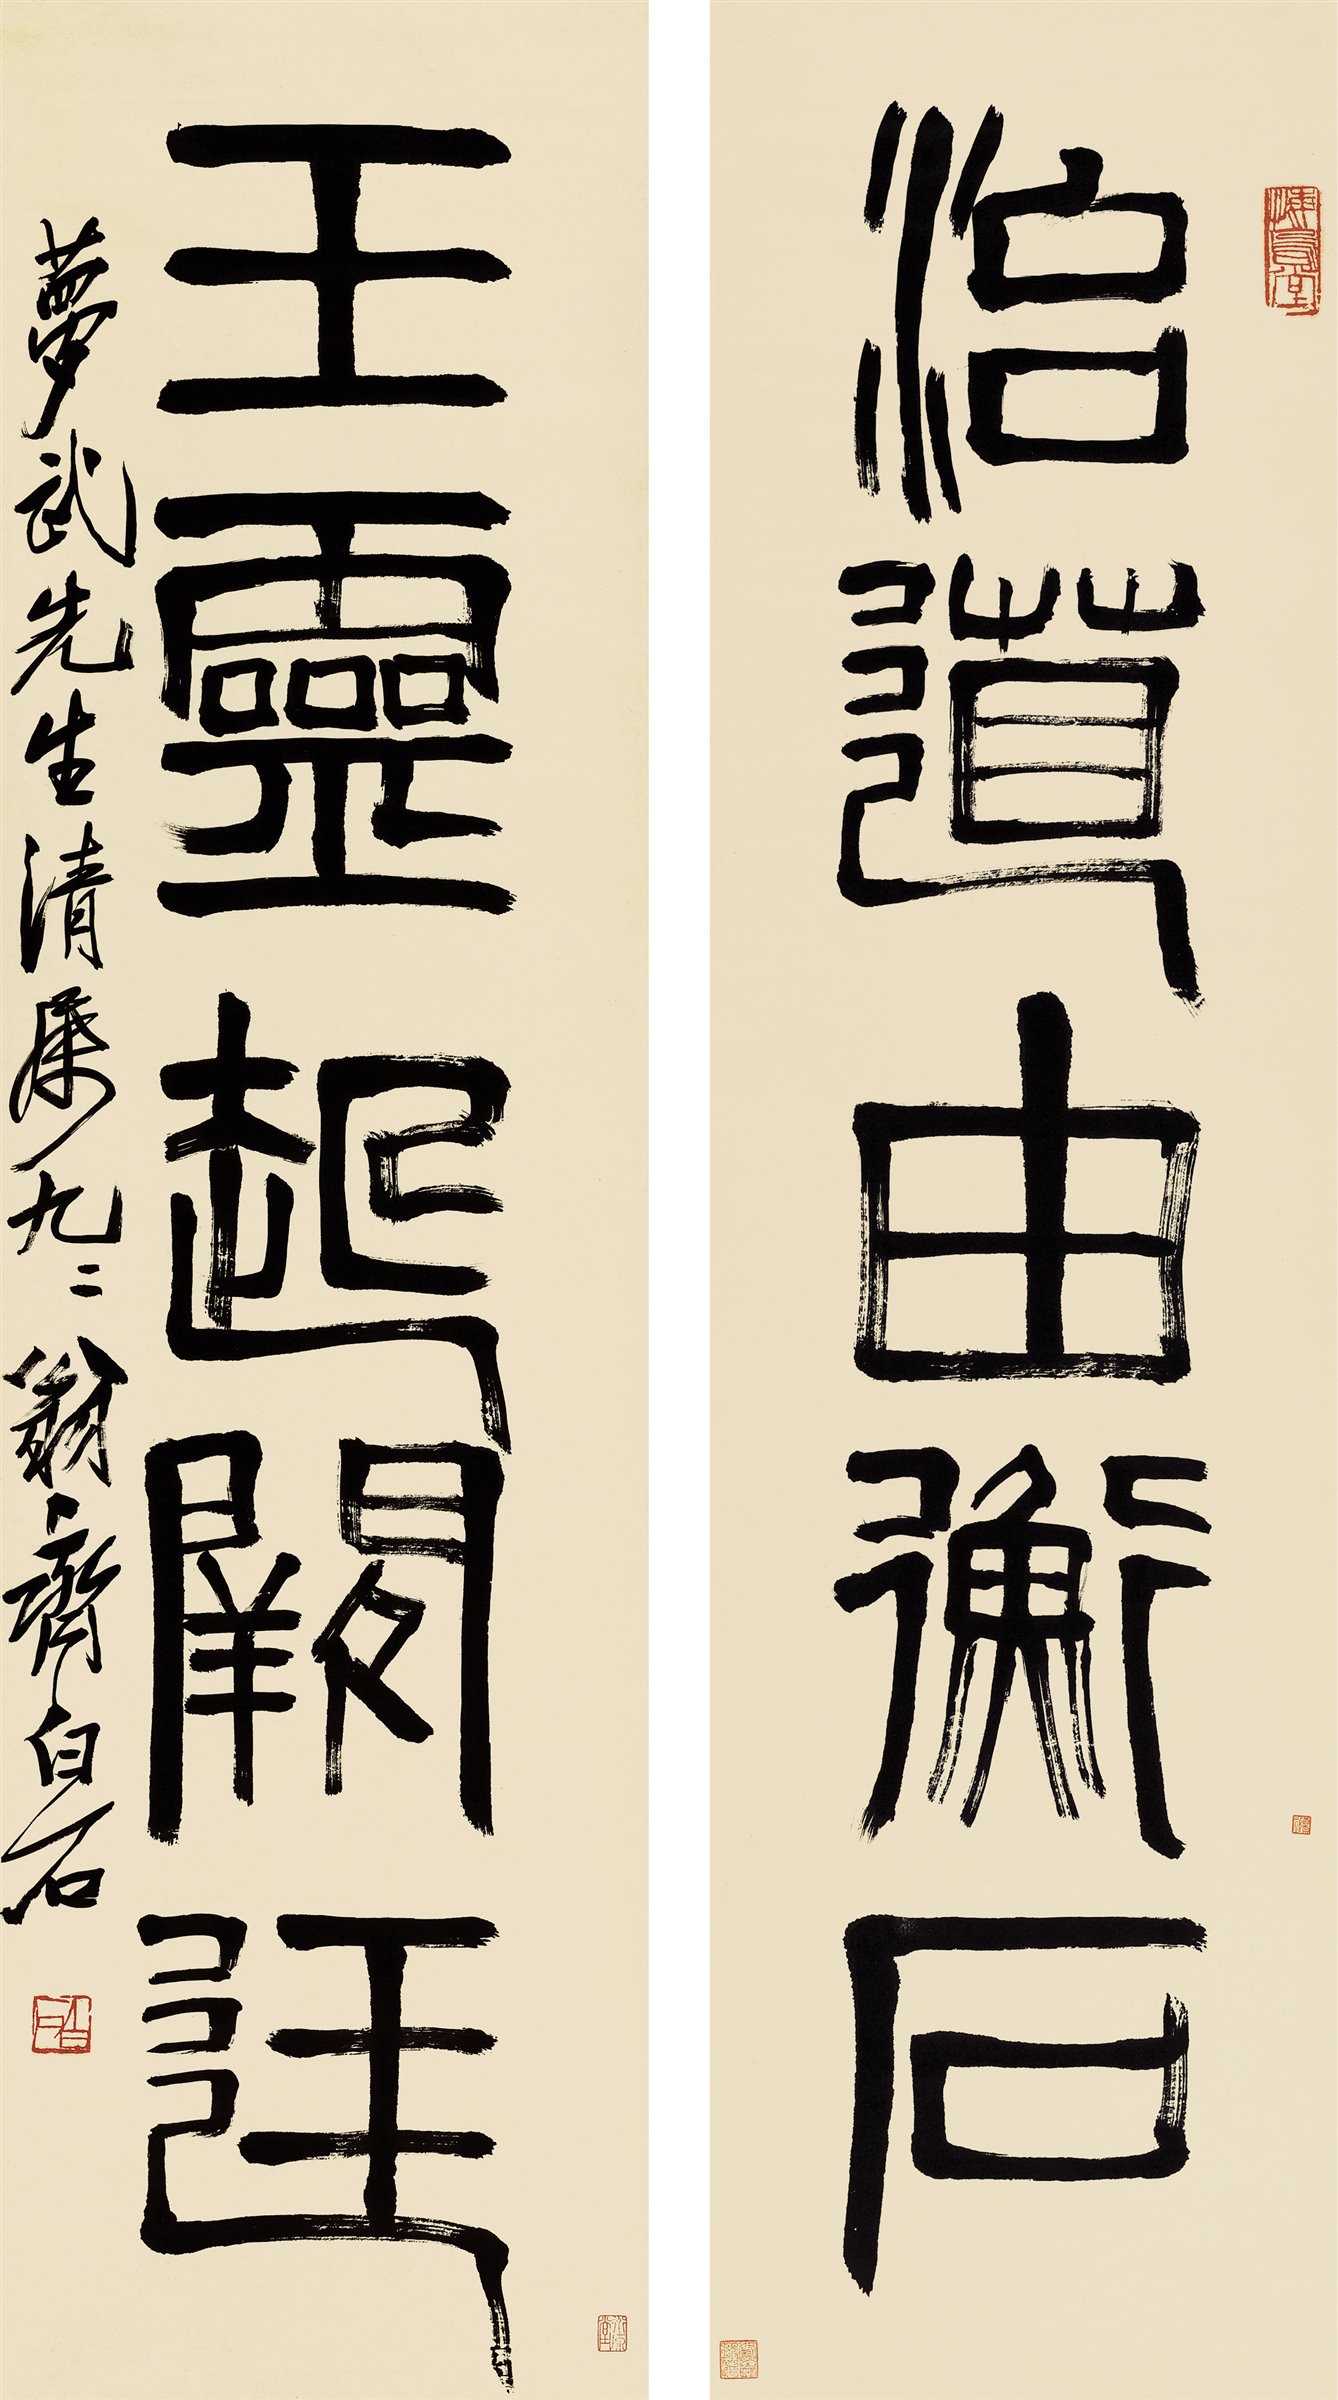 治道由衡石
王靈起闕廷
夢武先生清屬九二翁齊白石
悔烏堂